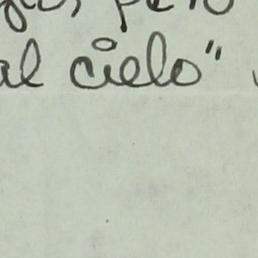 pero
al cielo"